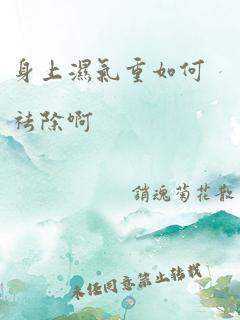 身上濕氣重如何
祛除啊
銷魂菊花散
未任同意禁止轉載